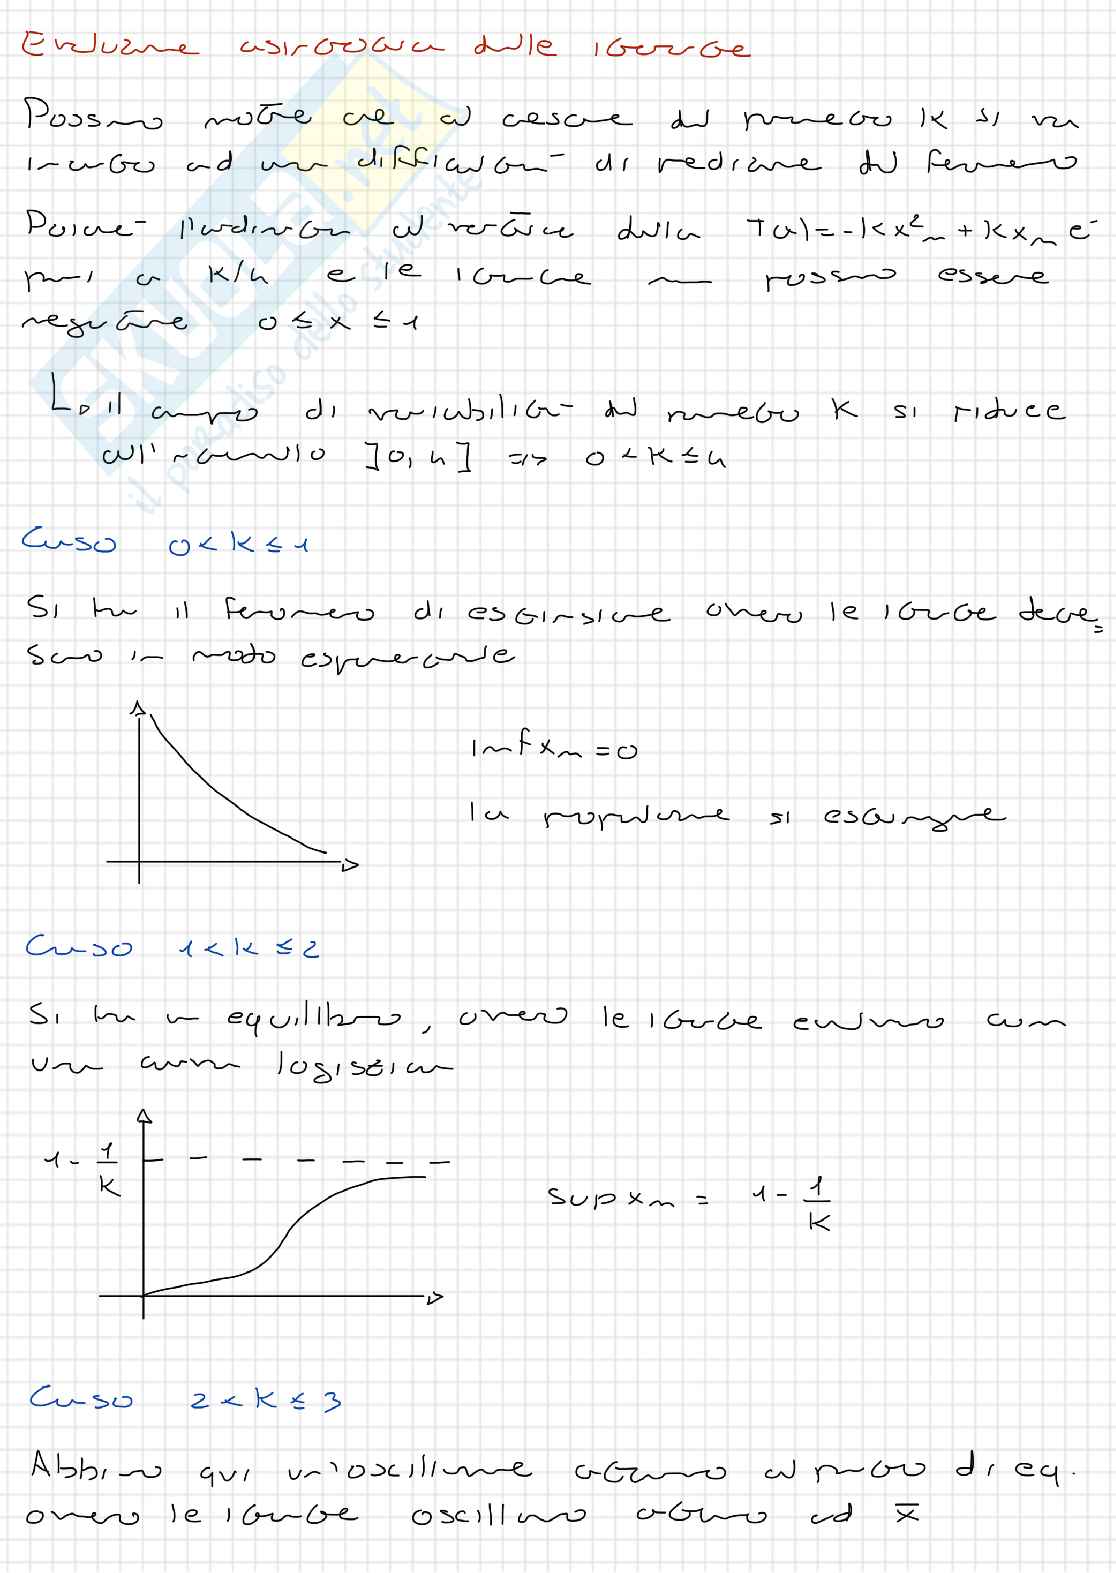 Evoluzione asintotica delle iterate
Possiamo notare che al crescere del parametro K si va
incontro ad una difficoltà di previsione del fenomeno
Poiché l'ordinata al vertice della T(x)=-Kx²n + Kxn è
pari a K/4 e le iterate non possono essere
negative 0 ≤ x ≤ 1
↳ il campo di variabilità del parametro K si riduce
all'intervallo ]0,4] => 0 < K ≤ 4
Caso 0 < K ≤ 1
Si ha il fenomeno di estinzione ovvero le iterate decre=
scono in modo esponenziale
inf xn = 0
la popolazione si estingue
Caso 1 < K ≤ 2
Si ha un equilibrio, ovvero le iterate evolvono come
una curva logistica
1 - 1/K
sup xn = 1 - 1/K
Caso 2 < K ≤ 3
Abbiamo qui un'oscillazione attorno al punto di eq.
ovvero le iterate oscillano attorno ad x̄
SKUOLA.net
il paradiso dello studente